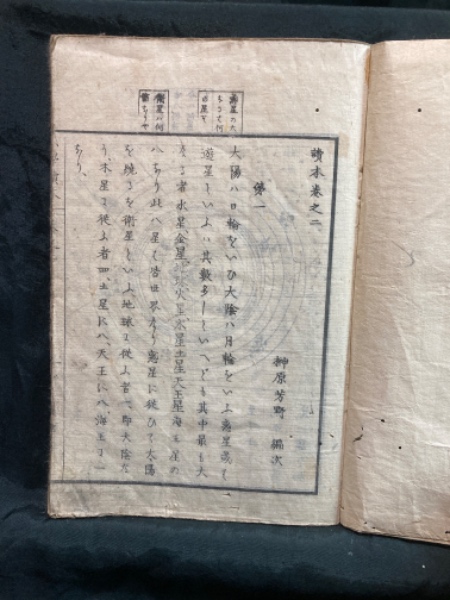 讀本巻之二
榊原芳野 編次
第一
太陽ハ日輪をいひ太陰ハ月輪をいふ惑星或ハ
遊星といふハ其數多しといへども其中最も大
なる者水星、金星、地球、火星、木星、土星、天王星、海王星の
八あり此八星ハ皆世界なり惑星に從ひて太陽
を繞るを衛星といふ地球に從ふ者一、即太陰な
り、木星に從ふ者四、土星に八、天王に八、海王に一
あり、